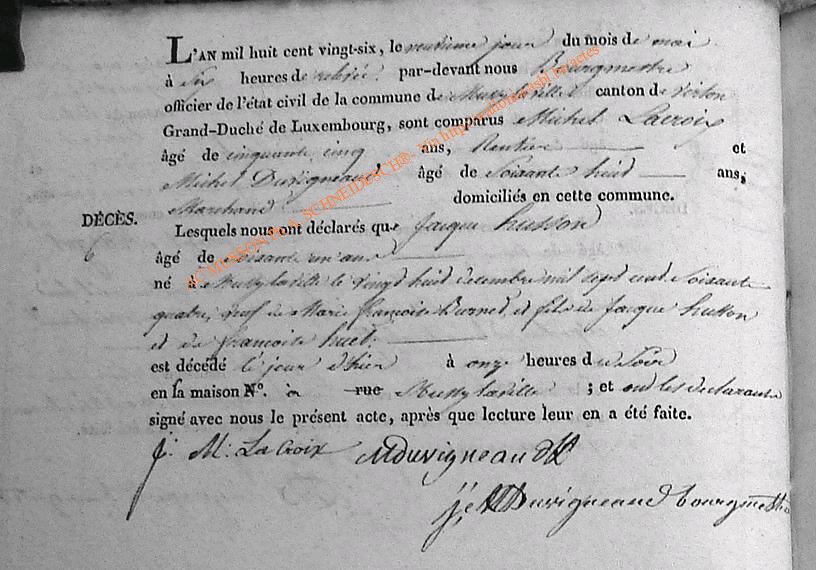 L'AN mil huit cent vingt-six, le neuvieme jour du mois de mai
à six heures de relevée, par-devant nous Bourgmestre
officier de l'état civil de la commune de Mussy la ville canton de virton
Grand-Duché de Luxembourg, sont comparus Michel Lacroix
âgé de cinquante cinq ans, Rentier et
Michel Duvigneaud, âgé de Soisante huid ans,
Marchand domiciliés en cette commune.
DÉCÈS.
6
Lesquels nous ont déclarés que Jacque husson
âgé de soisante un ans
né à Mussy laville le vingd huid decembre mil sept cent Soisante
quatre, veuf de Marie francoise Burnet, et fils de Jacque husson
et de francoise huet.
est décédé le jour d'hier à onze heures du Soir
en sa maison N°. à rue Mussy laville ; et ond les declarants
signé avec nous le présent acte, après que lecture leur en a été faite.
j. M. La Croix MDuvigneaud
Duvigneaud bourgmestre
SCHNEIDESCH®